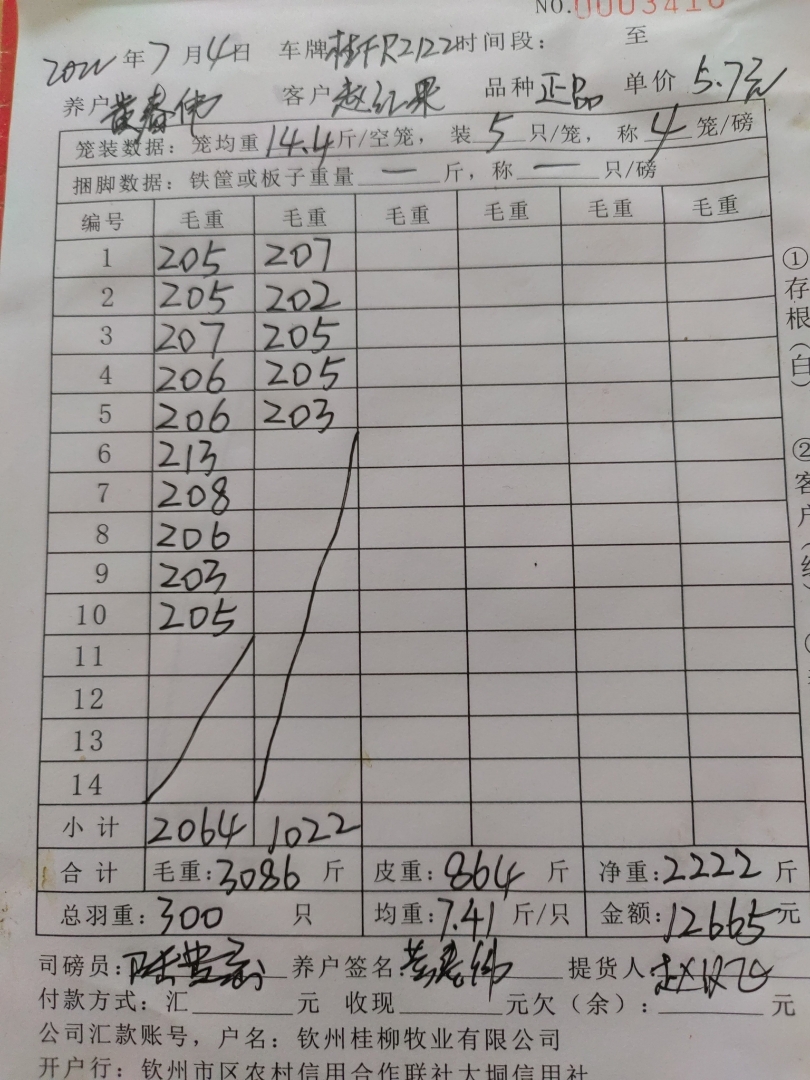 NO.0003416
2022年7月4日 车牌桂FR2122时间段: 至
养户黄春伟 客户赵红果 品种正品 单价5.7元
笼装数据: 笼均重14.4斤/空笼, 装5只/笼, 称4笼/磅
捆脚数据: 铁筐或板子重量一斤, 称一只/磅
编号 毛重 毛重 毛重 毛重 毛重 毛重
1 205 207
2 205 202
3 207 205
4 206 205
5 206 203
6 213
7 208
8 206
9 203
10 205
11
12
13
14
小计 2064 1022
合计 毛重:3086斤 皮重:864斤 净重:2222斤
总羽重:300只 均重:7.41斤/只 金额:12665元
司磅员: 养户签名黄春伟 提货人:
付款方式: 汇 元 收现 元欠(余): 元
公司汇款账号, 户名: 钦州桂柳牧业有限公司
开户行: 钦州市区农村信用合作联社大垌信用社
①存根(白)
②客户(红)